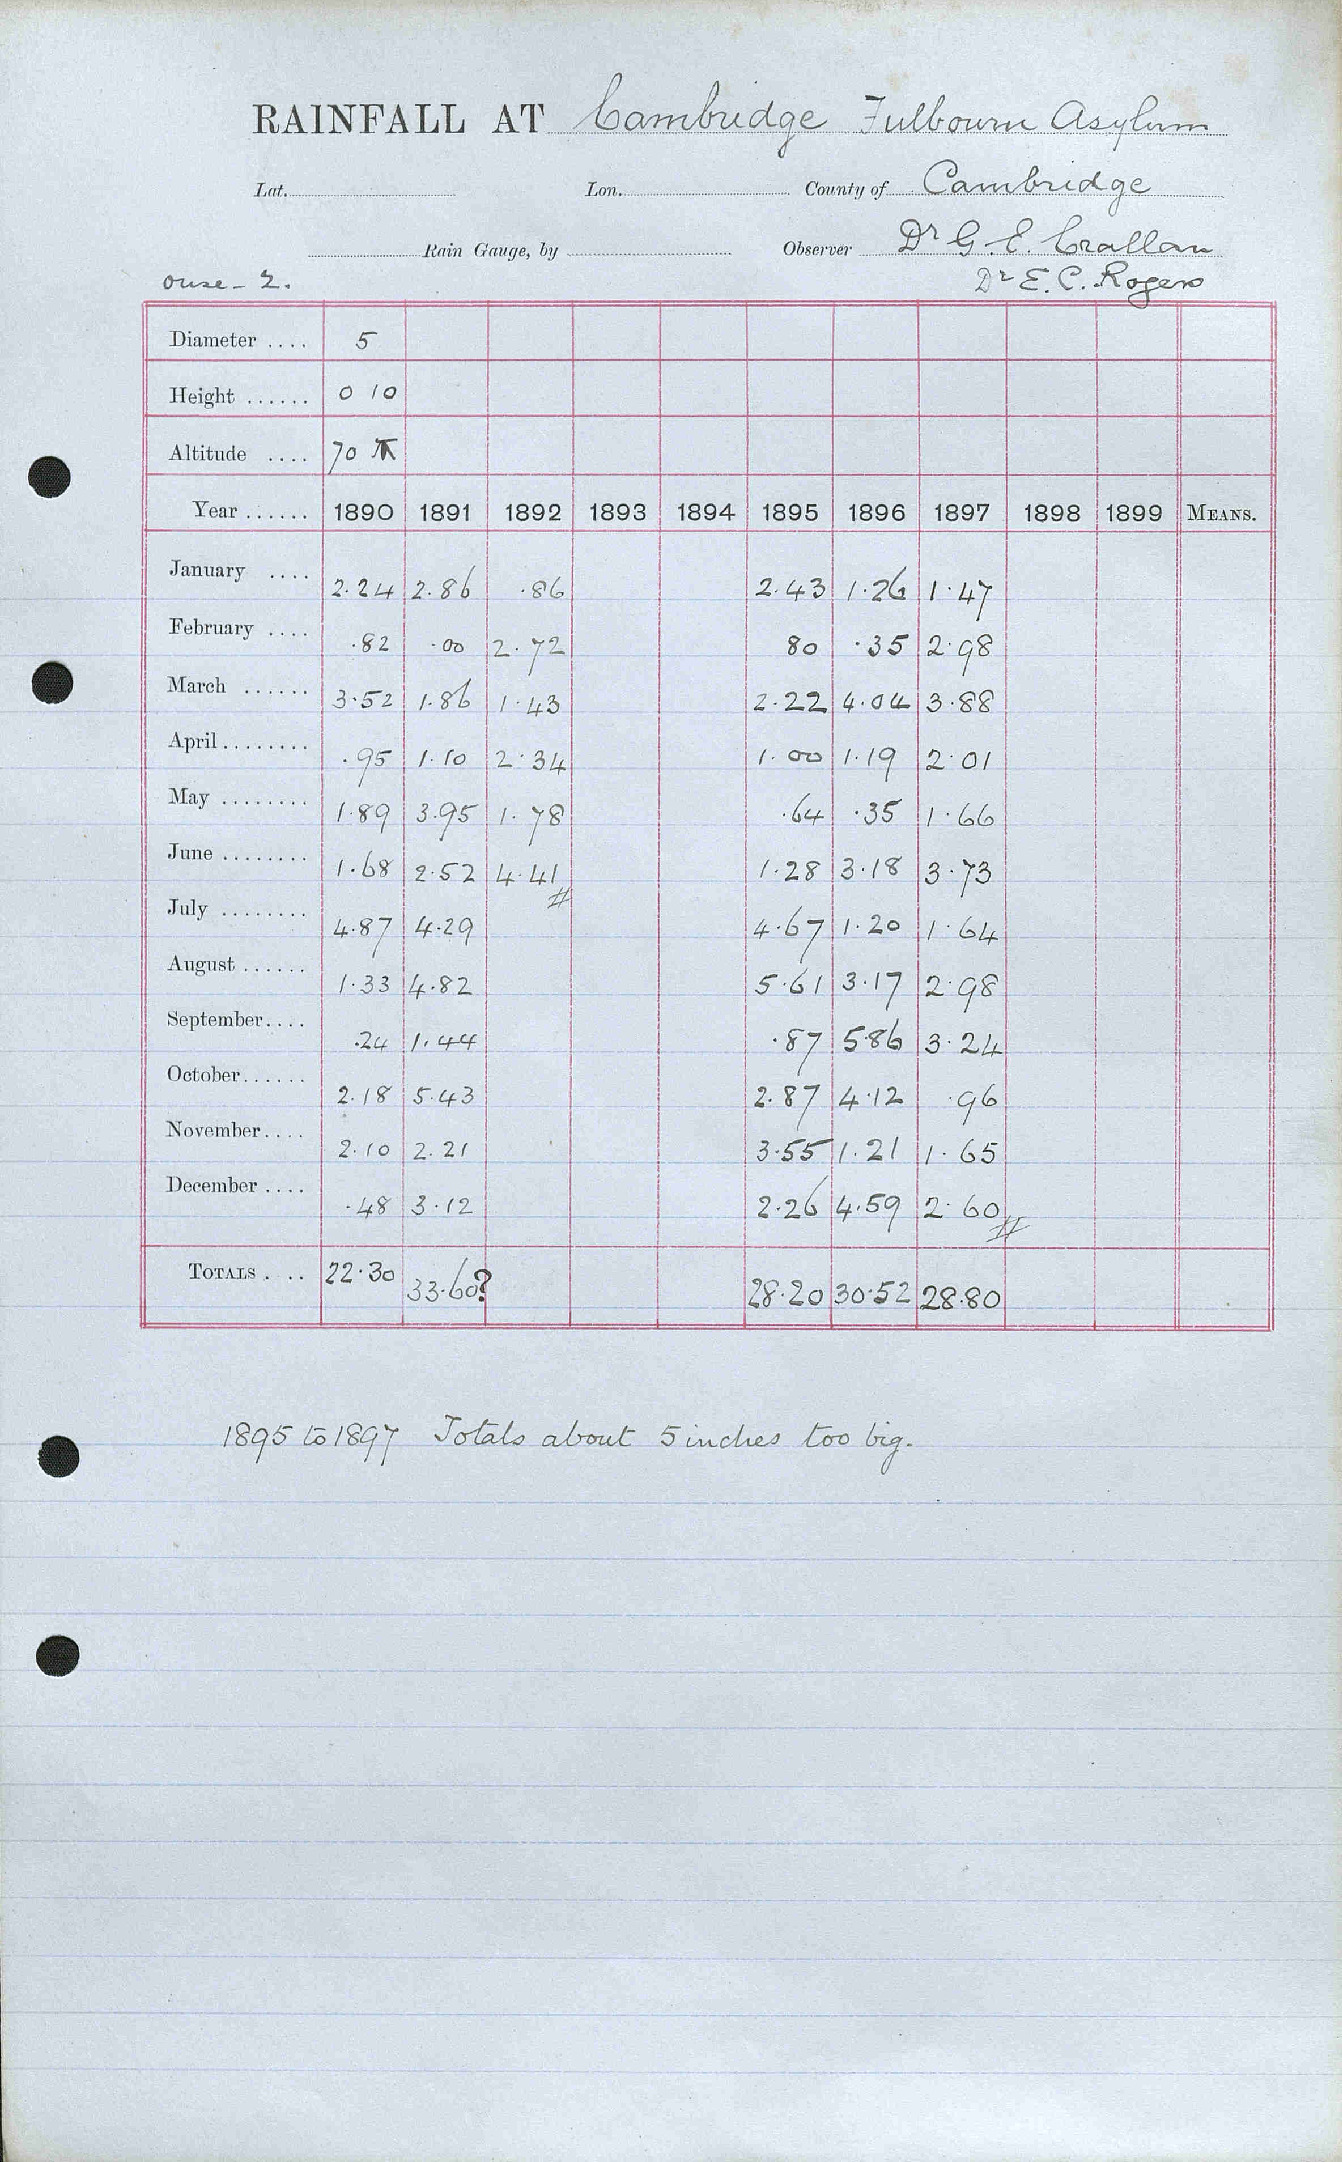 RAINFALL AT Cambridge Fulbourn Asylum
Lat. Lon. County of Cambridge
Rain Gauge, by Observer Dr G. E. Crallan
Ouse - 2. Dr E. C. Rogers
Diameter .... 5
Height ...... 0 10
Altitude .... 70
Year ...... 1890 1891 1892 1893 1894 1895 1896 1897 1898 1899 MEANS.
January .... 2.24 2.86 .86 2.43 1.26 1.47
February .... .82 .00 2.72 80 .35 2.98
March ...... 3.52 1.86 1.43 2.22 4.04 3.88
April ........ .95 1.10 2.34 1.00 1.19 2.01
May ........ 1.89 3.95 1.78 .64 .35 1.66
June ........ 1.68 2.52 4.41 1.28 3.18 3.73
July ........ 4.87 4.29 4.67 1.20 1.64
August ...... 1.33 4.82 5.61 3.17 2.98
September .... .24 1.44 .87 5.86 3.24
October ...... 2.18 5.43 2.87 4.12 .96
November .... 2.10 2.21 3.55 1.21 1.65
December .... .48 3.12 2.26 4.59 2.60
TOTALS . .. 22.30 33.60? 28.20 30.52 28.80
1895 to 1897 Totals about 5 inches too big.